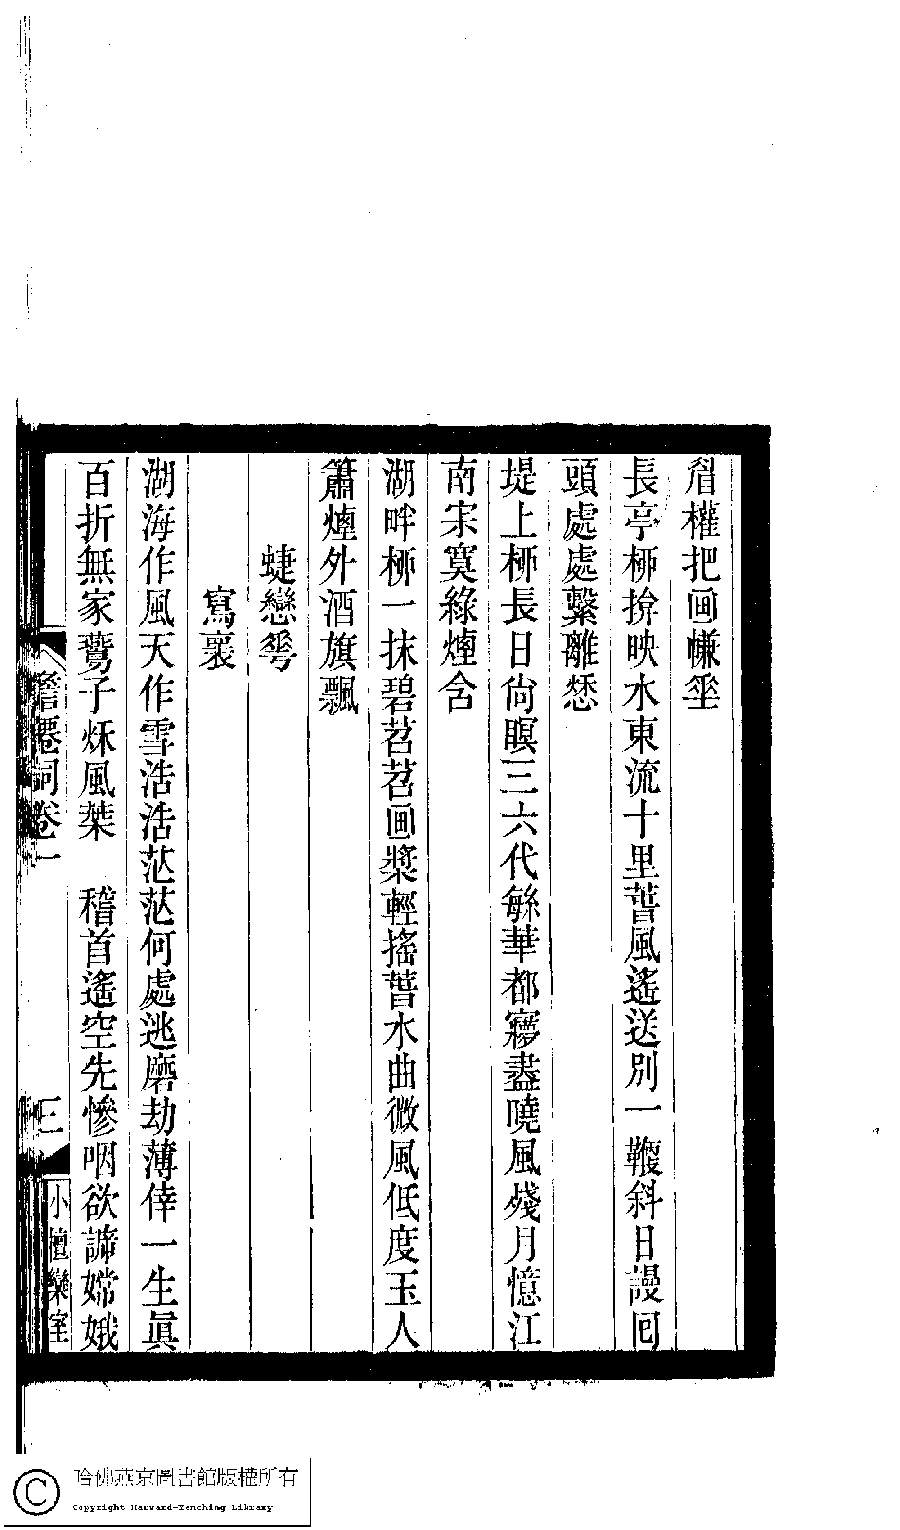 眉權把画㡘垂
長亭桺拚映水東流十里萅風遙送別一鞭斜日謾囘
頭處處繫離愁
堤上桺長日尙瞑三六代緐華都㝱盡曉風殘月憶江
南宋寞綠煙含
湖畔桺一抹碧苕苕画槳輕搖萅水曲微風低度玉人
簫煙外酒旗飄
蜨戀雩
寫褱
湖海作風天作雪浩浩茫茫何處逃磨劫薄倖一生眞
百折無家鴛子烁風葉　稽首遙空先慘咽欲諦嫦娥
詞卷一
三
小檀欒室
哈佛燕京圖書館版權所有
Copyright Harvard-Yenching Library